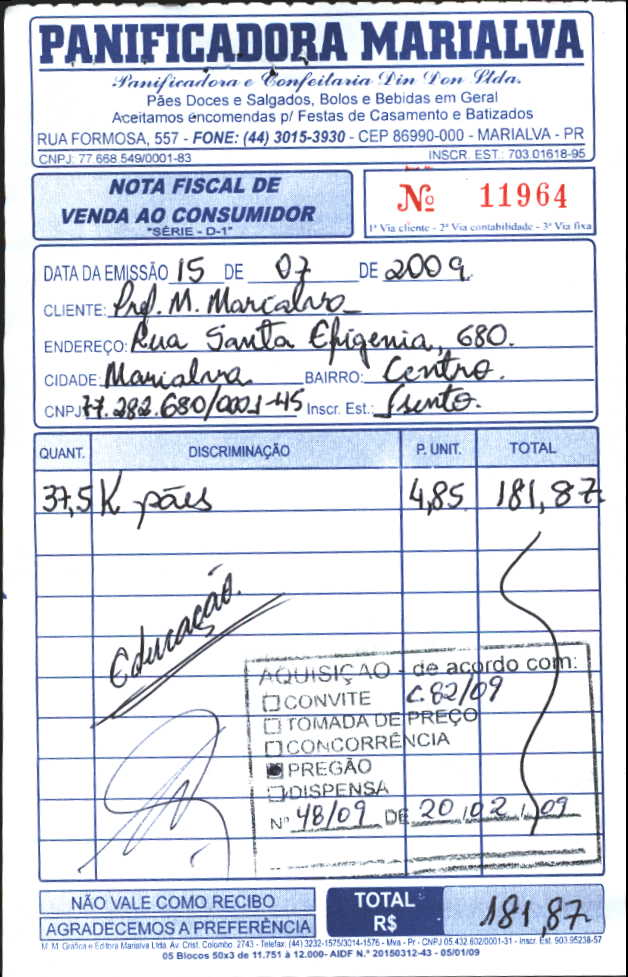 PANIFICADORA MARIALVA
Panificadora e Confeitaria Din Don Ltda.
Pães Doces e Salgados, Bolos e Bebidas em Geral
Aceitamos encomendas p/ Festas de Casamento e Batizados
RUA FORMOSA, 557 - FONE: (44) 3015-3930 - CEP 86990-000 - MARIALVA - PR
CNPJ: 77.668.549/0001-83 INSCR. EST.: 703.01618-95
NOTA FISCAL DE
VENDA AO CONSUMIDOR
"SÉRIE - D-1"
Nº 11964
1ª Via cliente - 2ª Via contabilidade - 3ª Via fixa
DATA DA EMISSÃO 15 DE 07 DE 2009
CLIENTE: Pref. M. Marialva
ENDEREÇO: Rua Santa Efigenia, 680.
CIDADE: Marialva BAIRRO: Centro.
CNPJ 77.282.680/0001-45 Inscr. Est.: Isento.
QUANT. DISCRIMINAÇÃO P. UNIT. TOTAL
37,5 K pães 4,85 181,87
Educação.
AQUISIÇAO - de acordo com:
CONVITE C.82/09
TOMADA DE PREÇO
CONCORRÊNCIA
PREGÃO
DISPENSA
Nº 48/09 DE 20/02/09
NÃO VALE COMO RECIBO
AGRADECEMOS A PREFERÊNCIA
TOTAL
R$ 181,87
M. M. Gráfica e Editora Marialva Ltda. Av. Crist. Colombo, 2743 - Telefax: (44) 3232-1575/3014-1576 - Mva - Pr - CNPJ 05.432.602/0001-31 - Inscr. Est. 903.95238-57
05 Blocos 50x3 de 11.751 à 12.000- AIDF N.º 20150312-43 - 05/01/09